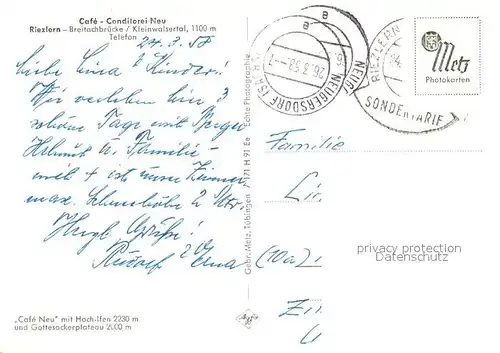 Café - Conditorei Neu
Riezlern - Breitachbrücke / Kleinwalsertal, 1100 m
Telefon
24.3.58
Liebe Lina & Kinder!
Wir verleben hier 3
schöne Tage mit
Helmut u. Familie
ist unser Zimmer
max. Schneehöhe 2 Mtr.
Herzl. Grüße!
Rudolf u Erna
„Café Neu" mit Hoch-Ifen 2230 m
und Gottesackerplateau 2000 m
Gebr. Metz, Tübingen 7 171 H 91 Ee Echte Photographie
NEUGERSDORF (SACHS)
26.3.58
a
RIEZLERN
SONDERTARIF
Metz
Photokarten
Familie
(10a)
privacy protection
Datenschutz